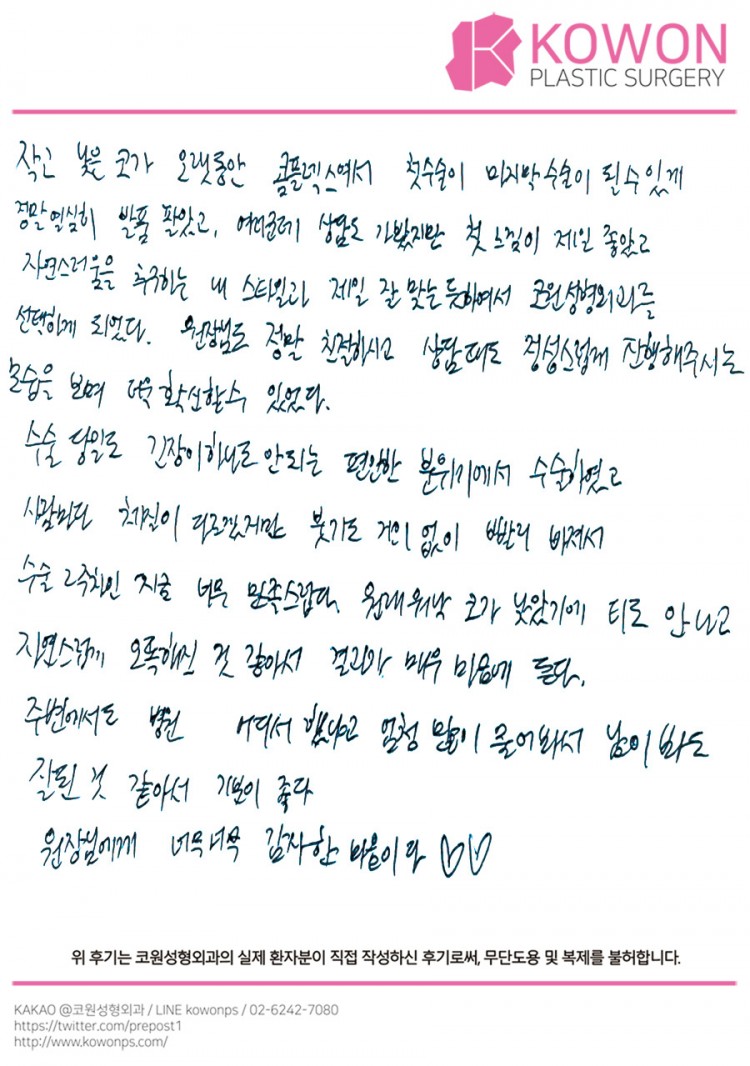 KOWON
PLASTIC SURGERY
작고 낮은 코가 오랫동안 콤플렉스여서 첫수술이 마지막 수술이 될 수 있게
정말 열심히 발품 팔았고, 여러군데 상담도 가봤지만 첫 느낌이 제일 좋았고
자연스러움을 추구하는 내 스타일과 제일 잘 맞는 듯하여서 코원성형외과를
선택하게 되었다. 원장님도 정말 친절하시고 상담때도 정성스럽게 진행해주시는
모습을 보며 더욱 확신할수 있었다.
수술 당일도 긴장이 하나도 안되는 편안한 분위기에서 수술하였고
사람마다 체질이 다르겠지만 붓기도 거의 없이 빨리 빠져서
수술 2주차인 지금 너무 만족스럽다. 원래 워낙 코가 낮았기에 티도 안나고
자연스럽게 오똑해진 것 같아서 결과가 매우 마음에 든다.
주변에서도 병원 어디서 했냐고 엄청 많이 물어봐서 남이 봐도
잘된 것 같아서 기분이 좋다
원장님에게 너무너무 감사한 마음이다 ♡♡
위 후기는 코원성형외과의 실제 환자분이 직접 작성하신 후기로써, 무단도용 및 복제를 불허합니다.
KAKAO @코원성형외과 / LINE kowonps / 02-6242-7080
https://twitter.com/prepost1
http://www.kowonps.com/